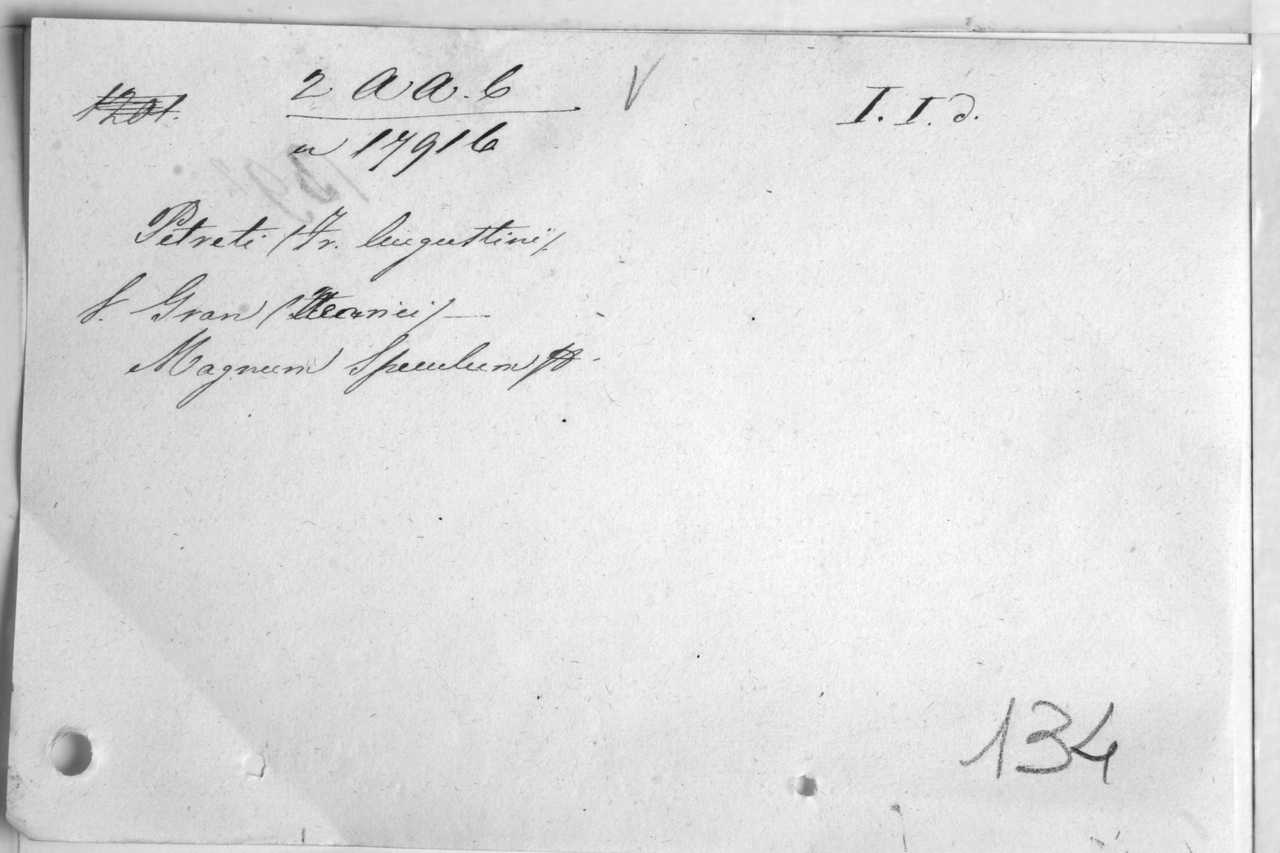 1201.
2 a a. 6
a 17916
I. I. d.
Petreti (Fr. Augustini)
f. Gran (Henrici) —
Magnum Speculum
134